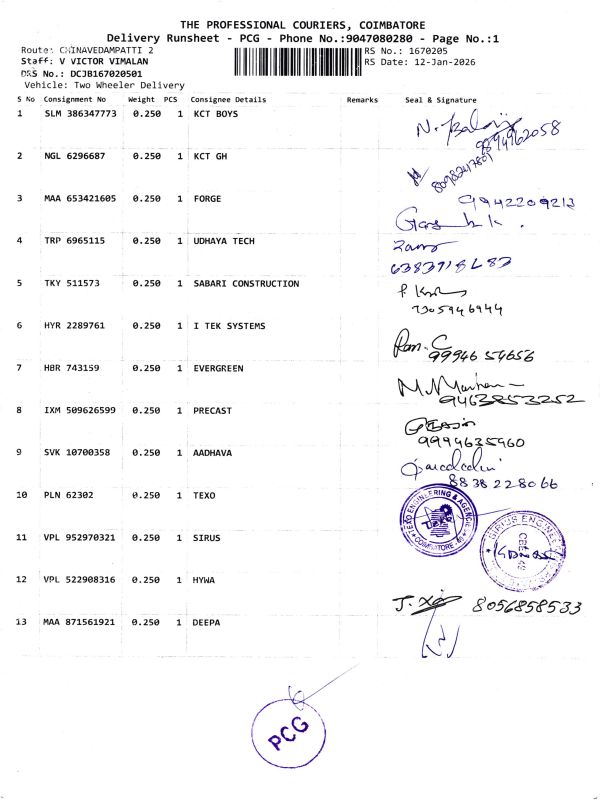 THE PROFESSIONAL COURIERS, COIMBATORE
Delivery Runsheet - PCG - Phone No.:9047080280 - Page No.:1
Route: CHINAVEDAMPATTI 2
RS No.: 1670205
Staff: V VICTOR VIMALAN
RS Date: 12-Jan-2026
D&S No.: DCJB167020501
Vehicle: Two Wheeler Delivery
S No Consignment No Weight PCS Consignee Details Remarks Seal & Signature
1 SLM 386347773 0.250 1 KCT BOYS
9894962058
2 NGL 6296687 0.250 1 KCT GH
3 MAA 653421605 0.250 1 FORGE 9942209213
4 TRP 6965115 0.250 1 UDHAYA TECH
5 TKY 511573 0.250 1 SABARI CONSTRUCTION
7305946944
6 HYR 2289761 0.250 1 I TEK SYSTEMS
99946 54656
7 HBR 743159 0.250 1 EVERGREEN
9463853252
8 IXM 509626599 0.250 1 PRECAST
9994635960
9 SVK 10700358 0.250 1 AADHAVA
8838228066
10 PLN 62302 0.250 1 TEXO
TEXO ENGINEERING & AGENCIES
COIMBATORE
11 VPL 952970321 0.250 1 SIRUS
SIRIUS ENGINEE
12 VPL 522908316 0.250 1 HYWA
8056858533
13 MAA 871561921 0.250 1 DEEPA
PCG